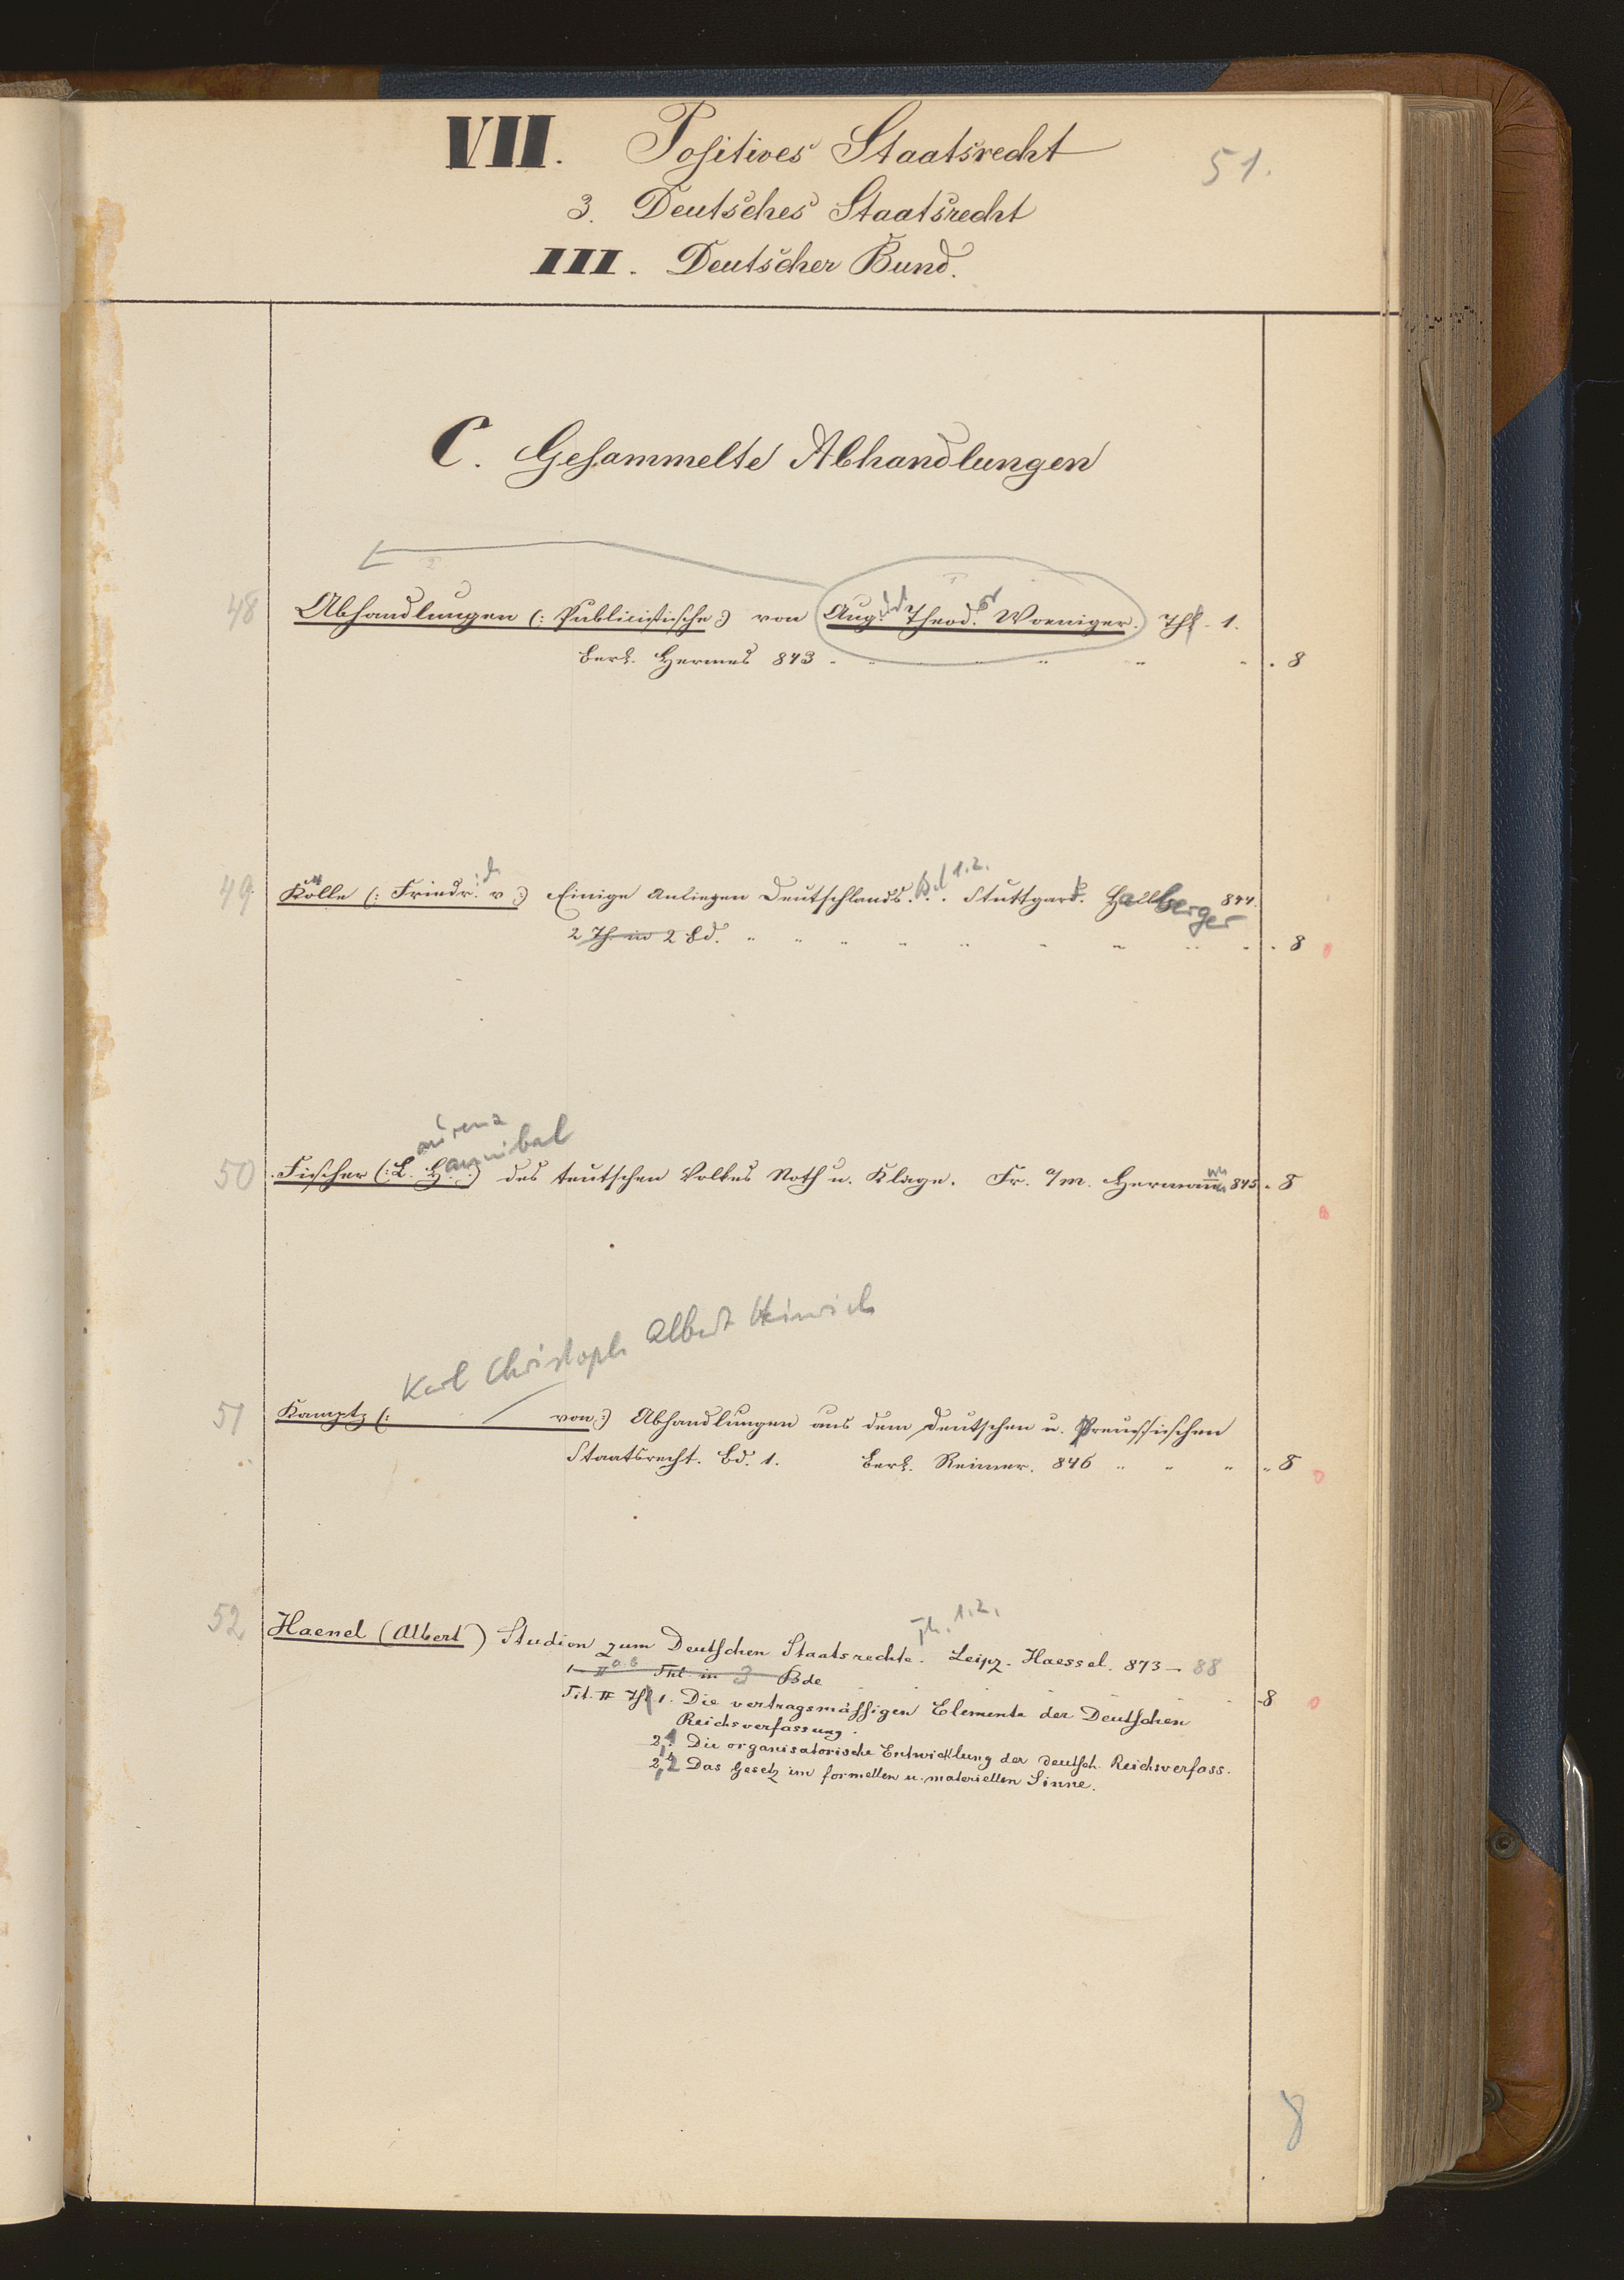 VII. Positives Staatsrecht
51.
3. Deutsches Staatsrecht
III. Deutscher Bund.
C. Gesammelte Abhandlungen
48 Abhandlungen (: Publicistische :) von Aug. Theod. Woeniger. Thl. 1.
Berl. Hermes 843 . 8
49 Kölle (: Friedr. v :) Einige Anliegen Deutschlands. Bd 1.2. Stuttgart. Hallberger 844.
2 Th. in 2 Bd. . 8
Laurenz
Hannibal
50 Fischer (: L. H. :) des teutschen Volkes Noth u. Klage. Fr. a/m. Hermann 845 . 8
Karl Christoph Albert Heinrich
51 Kamptz (: von :) Abhandlungen aus dem Deutschen u. Preussischen
Staatsrecht. Bd. 1. Berl. Reimer. 846 . 8
Th. 1.2.
52 Haenel (Albert) Studien zum Deutschen Staatsrechte. Leipz. Haessel. 873 - 88
1-II a.b Thl. in 3 Bde
Tit. II Thl 1. Die vertragsmässigen Elemente der Deutschen 8
Reichsverfassung.
2,1. Die organisatorische Entwicklung der deutsch. Reichsverfass.
2,2 Das Gesetz im formellen u. materiellen Sinne.
8